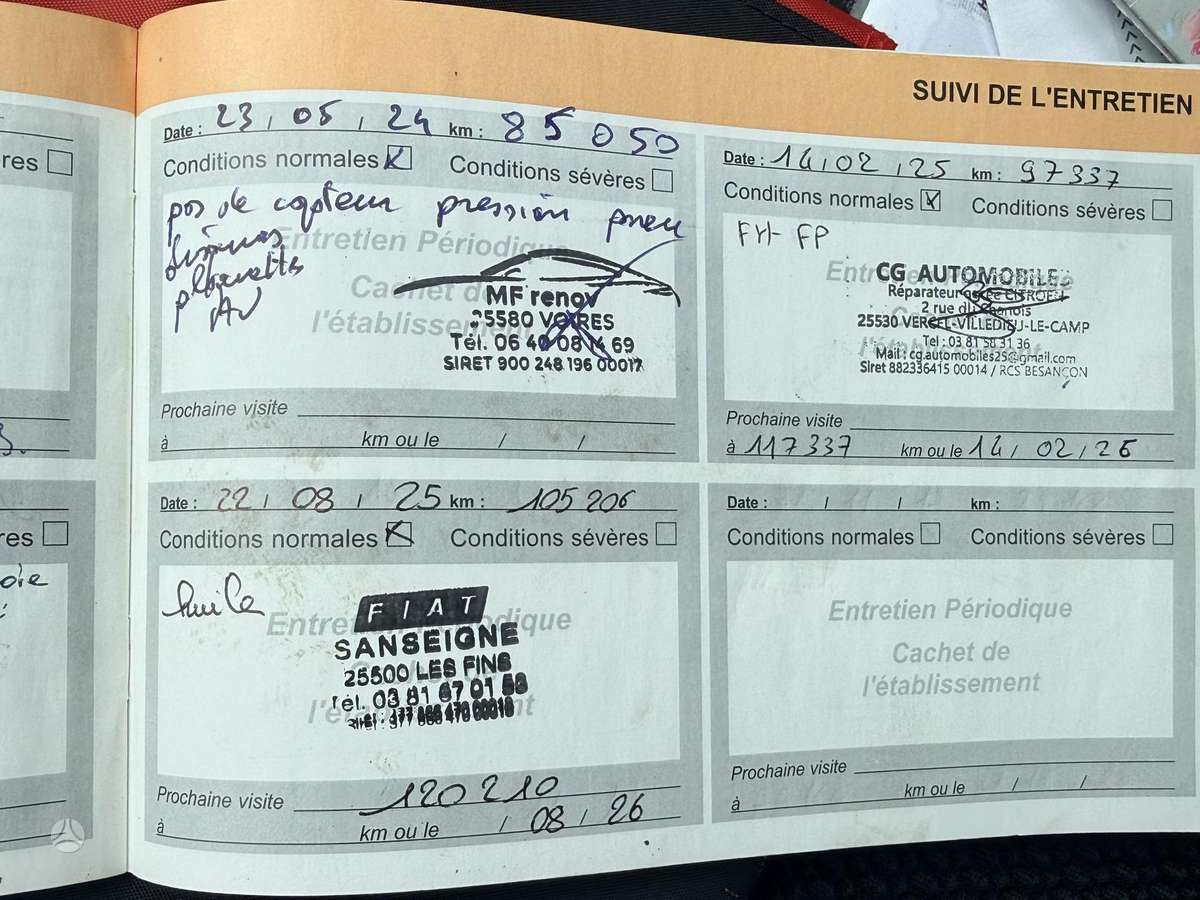 SUIVI DE L'ENTRETIEN
res
Date : 23 / 05 / 24 km : 85 050
Conditions normales Conditions sévères
pos de capteur pression pneu
disques
plaquettes
AV
Entretien Périodique
Cachet de
l'établissement
MF renov
25580 VOIRES
Tél. 06 40 08 14 69
SIRET 900 248 196 00017
Prochaine visite
à km ou le / /
Date : 14 / 02 / 25 km : 97 337
Conditions normales Conditions sévères
FH FP
CG AUTOMOBILE
Réparateur CITROEN
2 rue du
25530 VERCEL-VILLEDIEU-LE-CAMP
Tel : 03 81 58 31 36
Mail : cg.automobiles25@gmail.com
Siret 882336415 00014 / RCS BESANÇON
Prochaine visite
à 117337 km ou le 14 / 02 / 26
res
Date : 22 / 08 / 25 km : 105 206
Conditions normales Conditions sévères
huile
Entretien Périodique
l'établissement
FIAT
SANSEIGNE
25500 LES FINS
Tél. 03 81 67 01 58
Prochaine visite 120 210
à km ou le / 08 / 26
Date : / / km :
Conditions normales Conditions sévères
Entretien Périodique
Cachet de
l'établissement
Prochaine visite
à km ou le / /